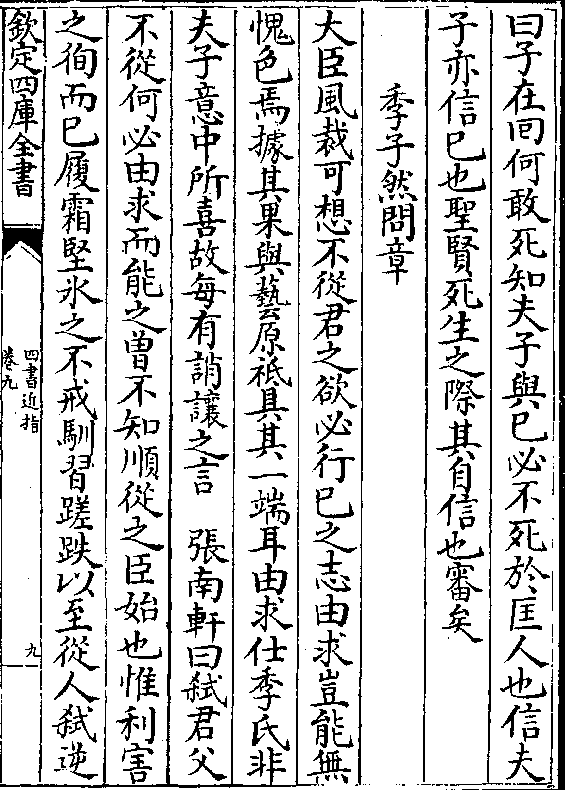 曰子在囘何敢死知夫子與已必不死於匡人也信夫
子亦信已也聖賢死生之際其自信也審矣
季子然問章
大臣風裁可想不從君之欲必行已之志由求豈能無
愧色焉據其果與藝原祗具其一端耳由求仕季氏非
夫子意中所喜故每有誚讓之言 張南軒曰弑君父
不從何必由求而能之曽不知順從之臣始也惟利害
之徇而已履霜堅氷之不戒馴習蹉跌以至從人弑逆
欽定四庫全書
四書近指
卷九
九